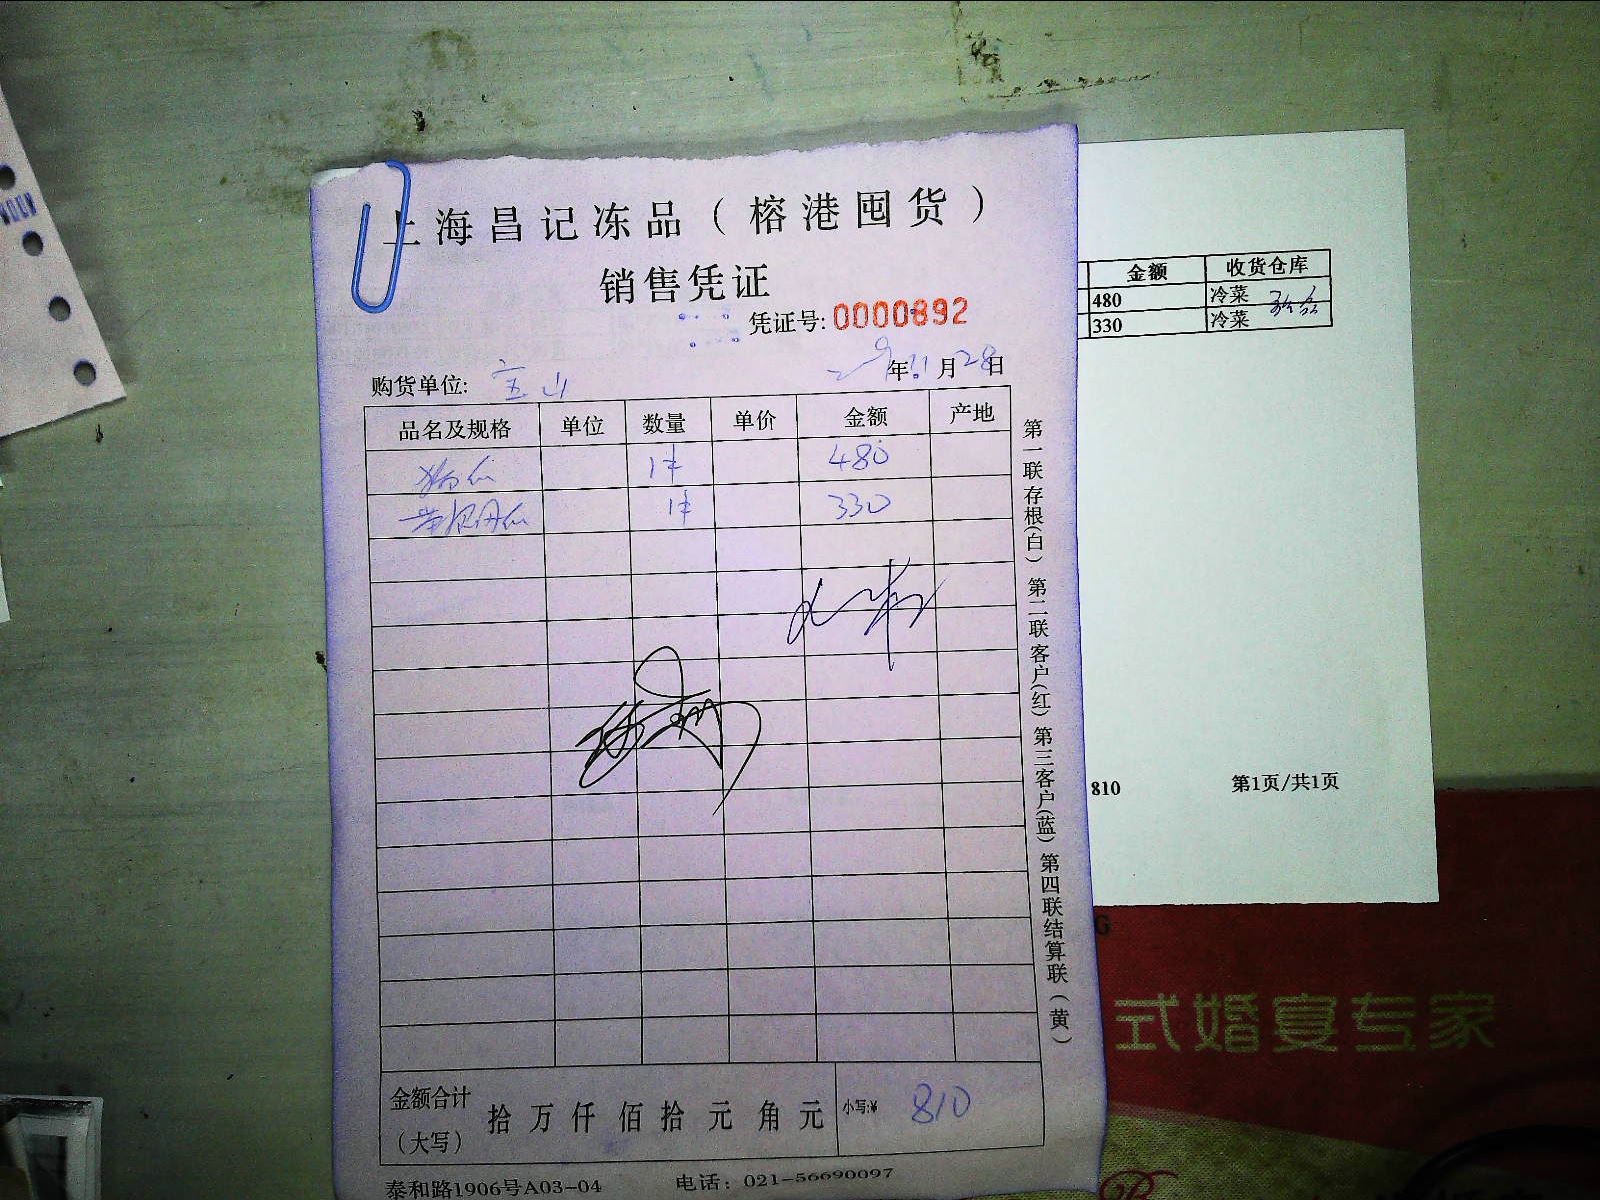 上海昌记冻品（榕港囤货）
销售凭证
凭证号: 0000892
购货单位: 宝山 年11月28日
品名及规格 单位 数量 单价 金额 产地
1件 480
1件 330
金额合计（大写） 拾 万 仟 佰 拾 元 角 元 小写:¥ 810
泰和路1906号A03-04 电话: 021-56690097
第一联存根(白) 第二联客户(红) 第三客户(蓝) 第四联结算联(黄)
金额 收货仓库
480 冷菜
330 冷菜
810 第1页/共1页
式婚宴专家